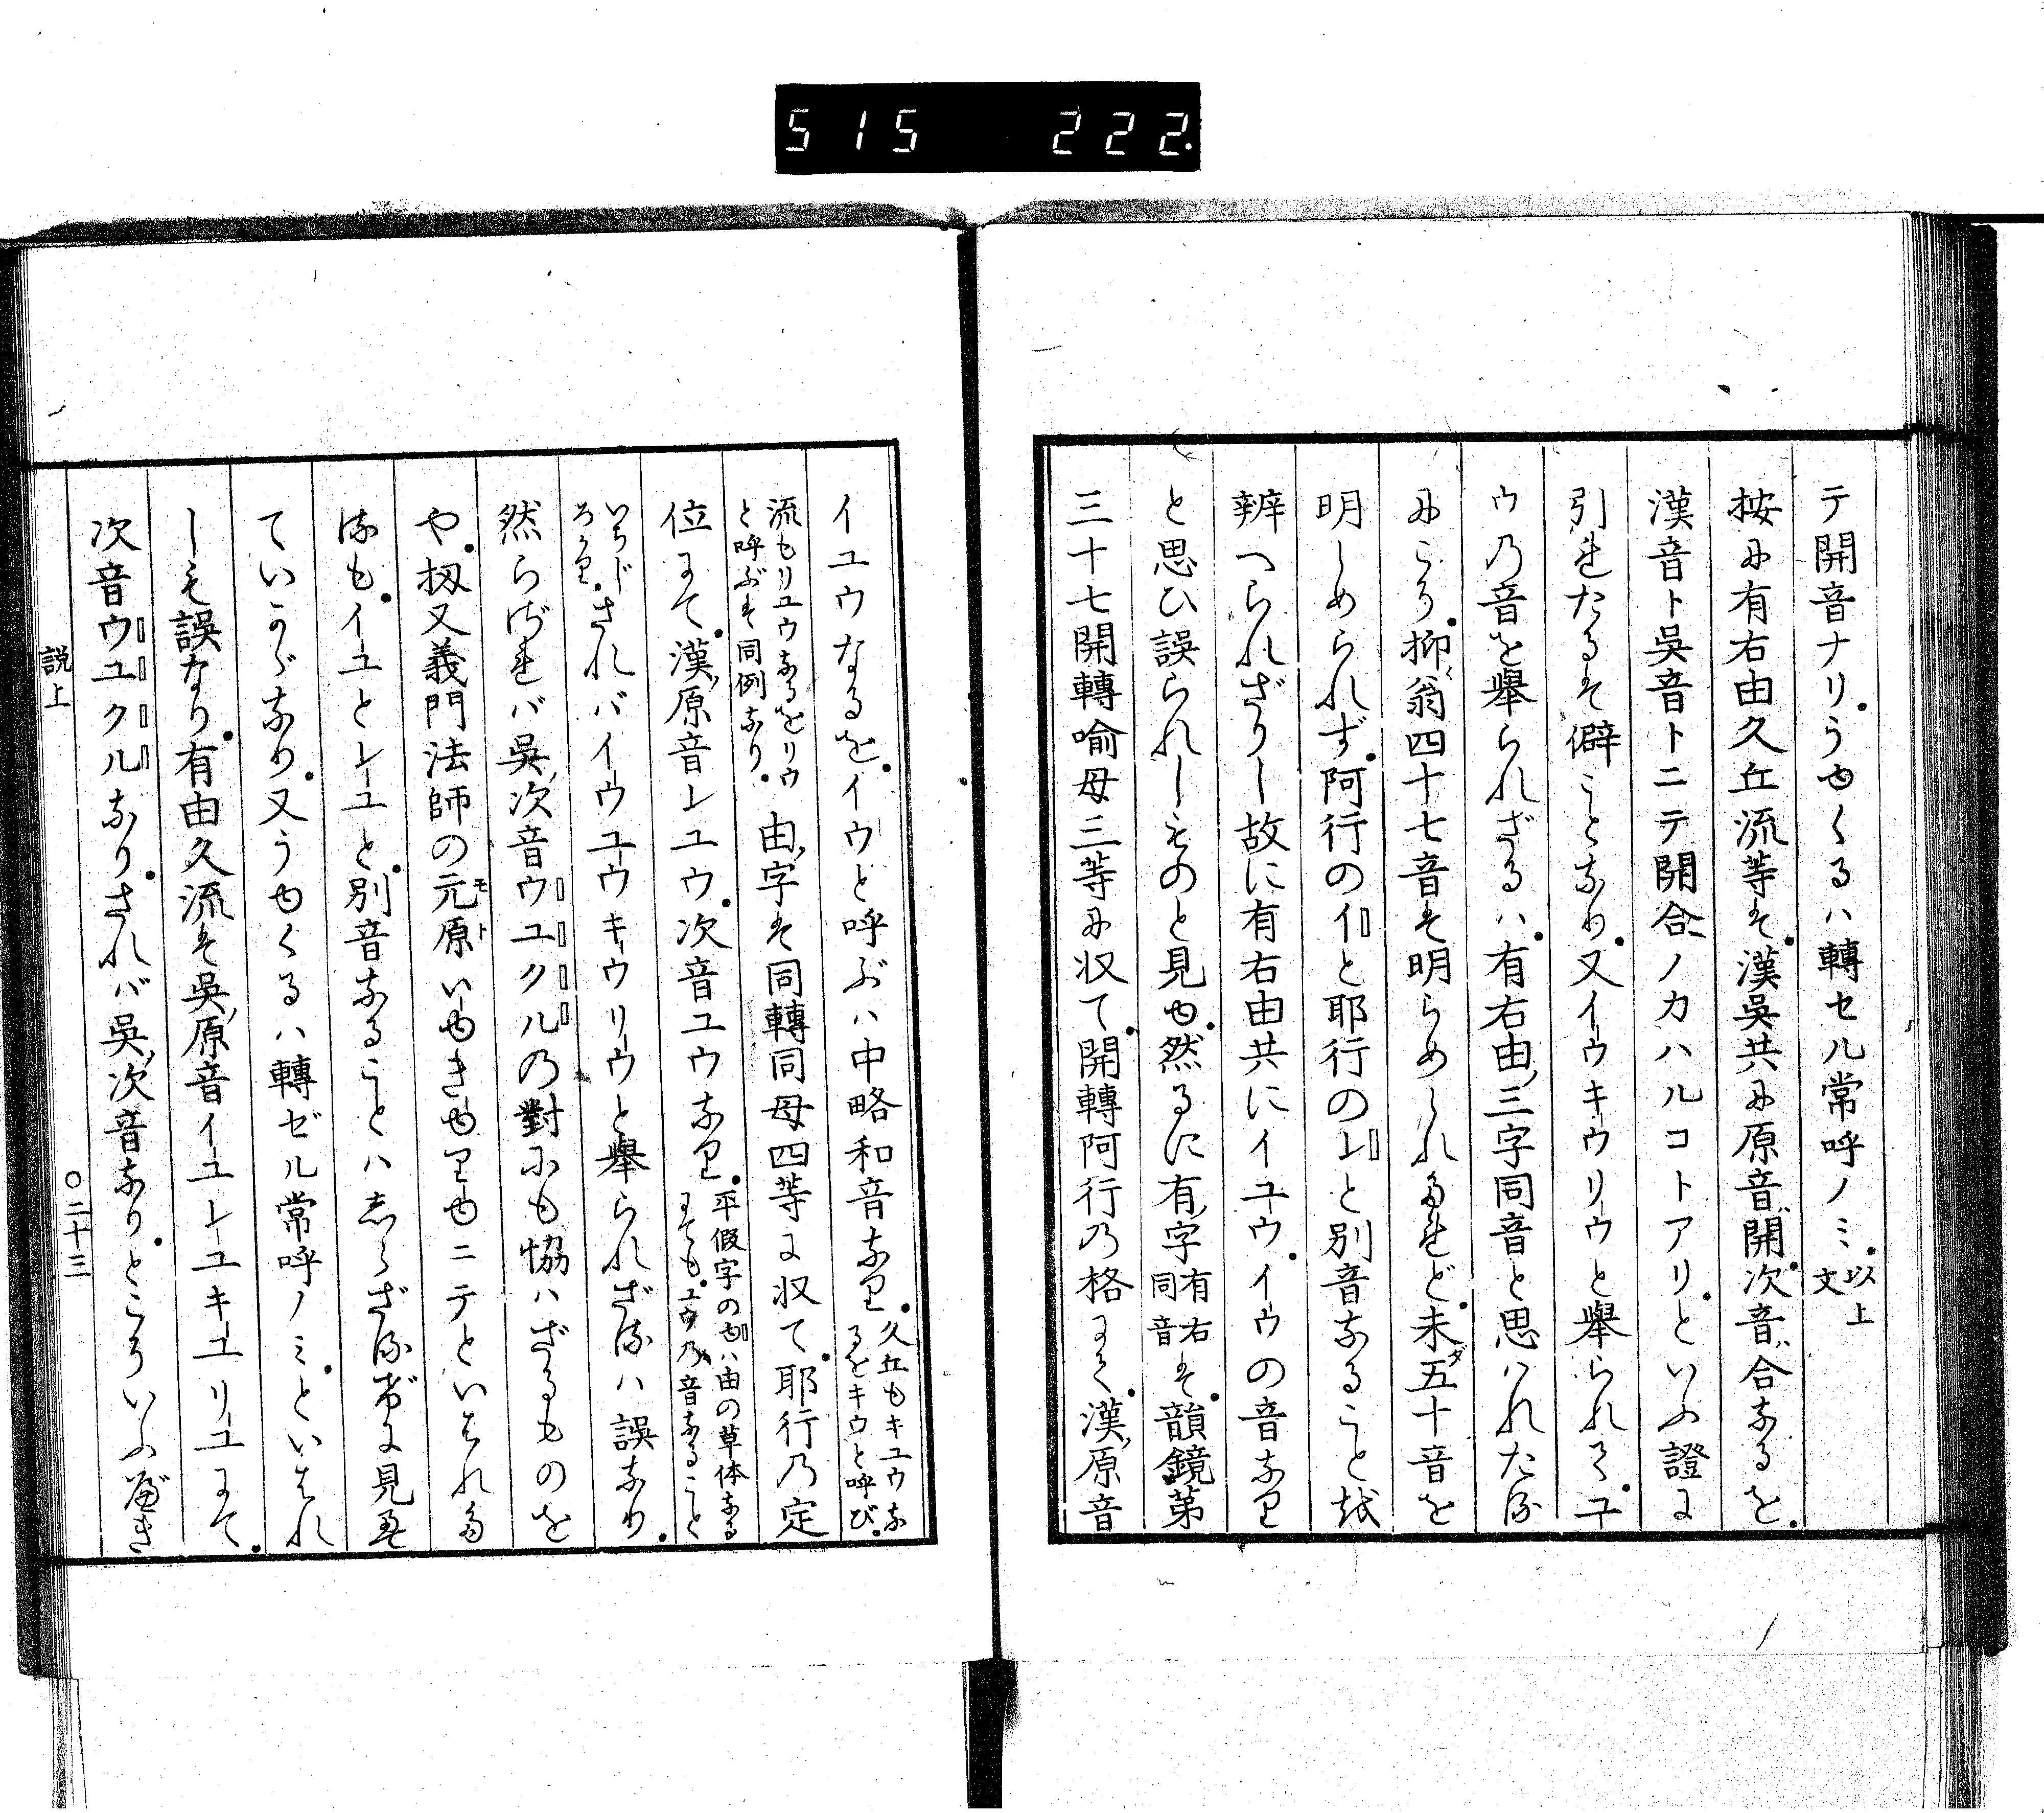 515 222.
テ開音ナリ。うゆくるハ轉セル常呼ノミ。以上文
按に有右由久丘流等は。漢吳共に原音開。次音合なるを。
漢音ト吳音トニテ開合ノカハルコトアリ。といふ證に
引れたるは僻ことなり。又イウキウリウと擧られて。ユ
ウの音を擧られざるハ。有右由三字同音と思ハれたる
にころ。抑翁四十七音は明らめられたれど。未ダ五十音を
明しめられず。阿行のイと耶行の𛄠と別音なること越
辨へられざりし故に有右由共にイユウ。イウの音なり
と思ひ誤られしものと見ゆ。然るに有字有右同音は。韻鏡第
三十七開轉喻母三等に収て。開轉阿行の格にて。漢原音
イユウなるを。イウと呼ぶハ中略和音なり。久丘もキユウなるをキウと呼び。
流もリユウなるをリウと呼ぶは同例なり。由字は同轉同母四等に収て。耶行の定
位にて。漢原音𛄠ユウ。次音ユウなり。平假字のゆハ由の草体なるにても。ユウの音なること
いちじろかり。されバイウユウキウリウと擧られざるハ誤なり。
然らざれバ吳次音ウユクルの對にも恊ハざるものを
や。扨又義門法師の元原モトいゆきゆりゆニテといはれた
るも。イユと𛄠ユと。別音なることハしらざるがに見え
ていかゞなり。又うゆくるハ轉ゼル常呼ノミ。といはれ
しも誤なり。有由久流は吳原音イユ𛄠ユキユリユにて。
次音ウユクルなり。されバ吳次音なり。ところいふべき
説上 〇二十三